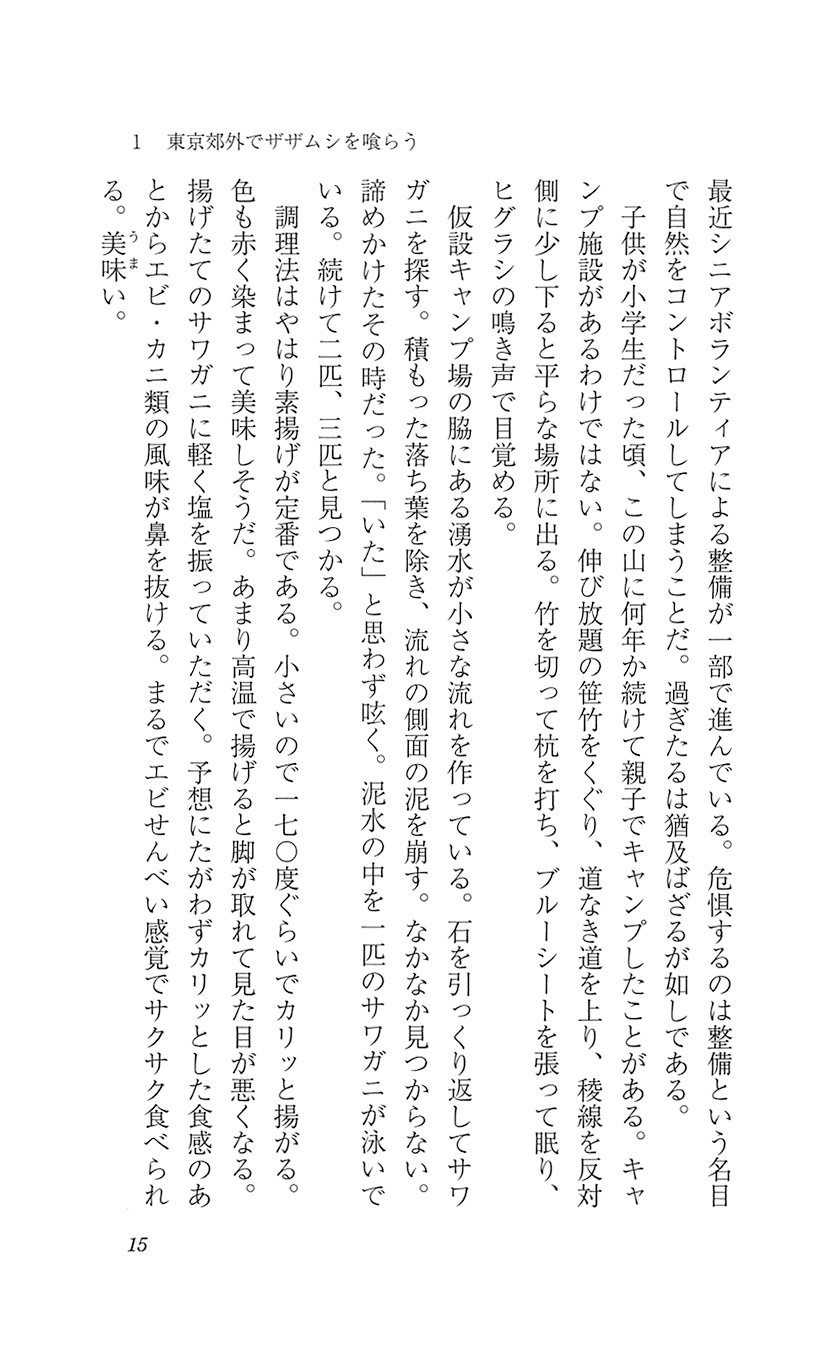 1 東京郊外でザザムシを喰らう
最近シニアボランティアによる整備が一部で進んでいる。危惧するのは整備という名目
で自然をコントロールしてしまうことだ。過ぎたるは猶及ばざるが如しである。
子供が小学生だった頃、この山に何年か続けて親子でキャンプしたことがある。キャ
ンプ施設があるわけではない。伸び放題の笹竹をくぐり、道なき道を上り、稜線を反対
側に少し下ると平らな場所に出る。竹を切って杭を打ち、ブルーシートを張って眠り、
ヒグラシの鳴き声で目覚める。
仮設キャンプ場の脇にある湧水が小さな流れを作っている。石を引っくり返してサワ
ガニを探す。積もった落ち葉を除き、流れの側面の泥を崩す。なかなか見つからない。
諦めかけたその時だった。「いた」と思わず呟く。泥水の中を一匹のサワガニが泳いで
いる。続けて二匹、三匹と見つかる。
調理法はやはり素揚げが定番である。小さいので一七〇度ぐらいでカリッと揚がる。
色も赤く染まって美味しそうだ。あまり高温で揚げると脚が取れて見た目が悪くなる。
揚げたてのサワガニに軽く塩を振っていただく。予想にたがわずカリッとした食感のあ
とからエビ・カニ類の風味が鼻を抜ける。まるでエビせんべい感覚でサクサク食べられ
る。美味い。
うま
15